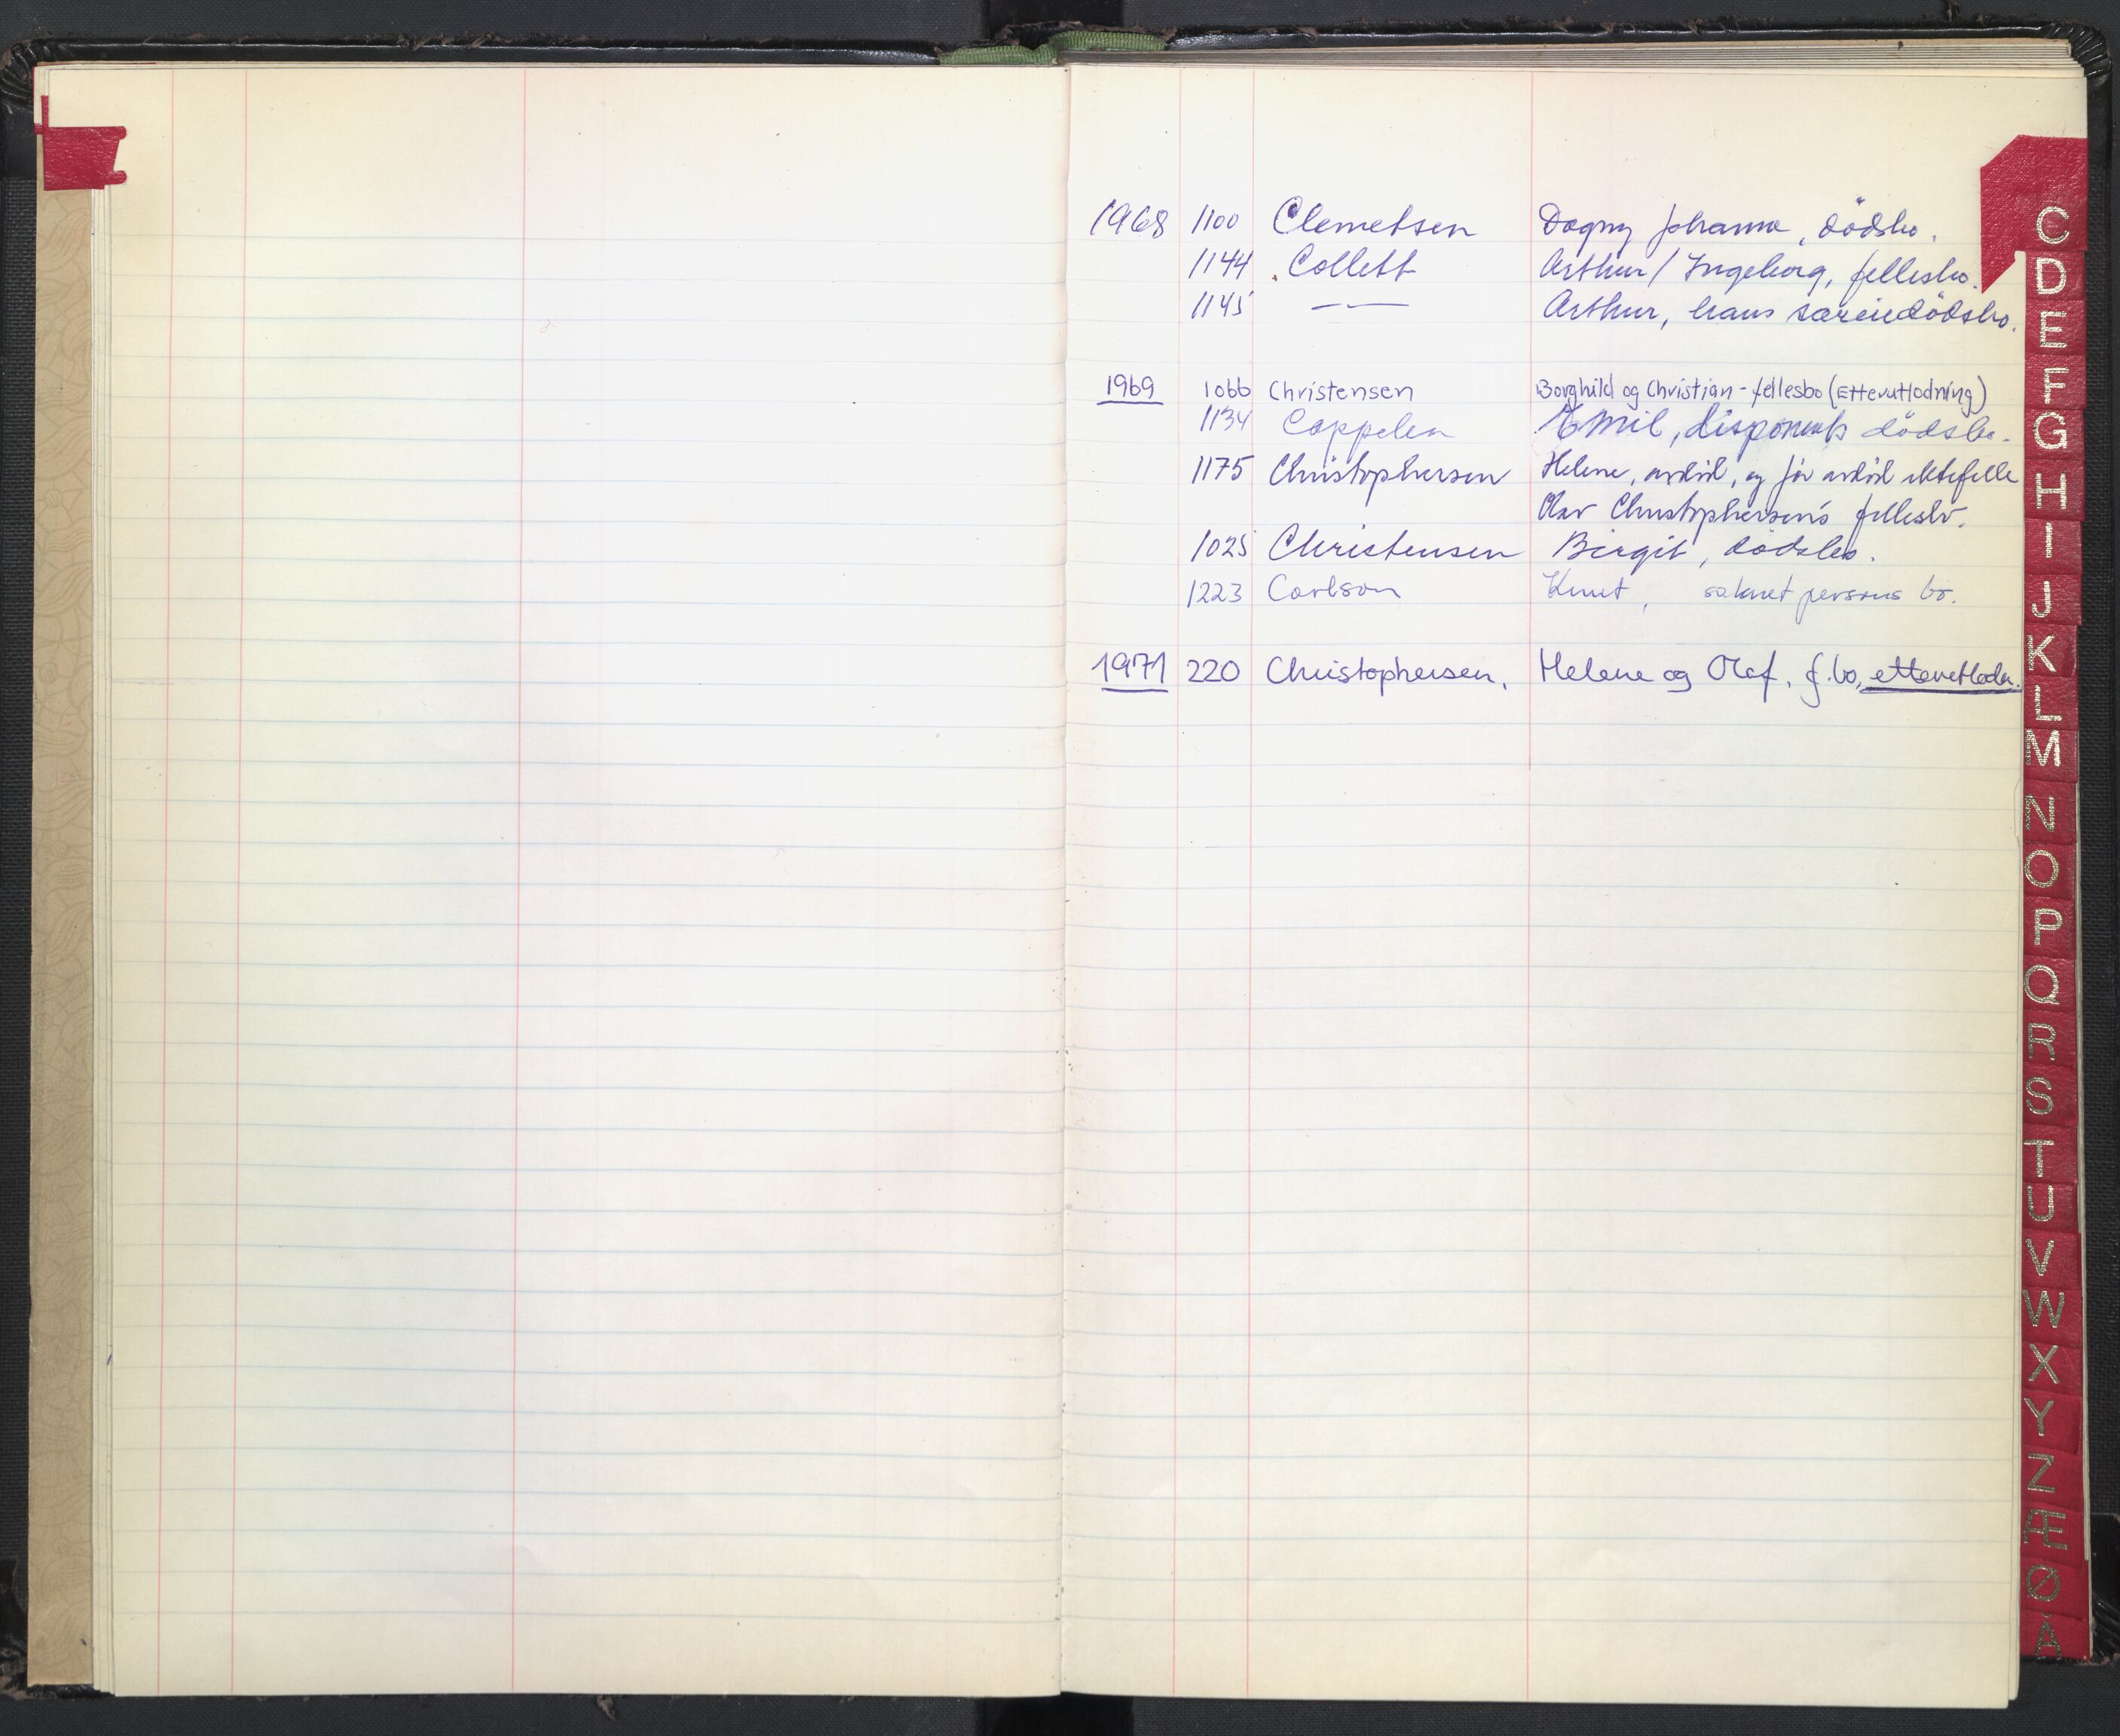 1968 1100 Clemetsen Dagny Johanna, dödsbo.
1144 Collett Arthur / Ingeborg, fellesbo.
1145 — — Arthur, hans særeiedödsbo.
1969 1066 Christensen Borghild og Christian - fellesbo (Etterutlodning)
1134 Cappelen Emil, disponents dödsbo.
1175 Christophersen Helene, avdöd, og før avdöd ektefelle
Olav Christophersen's fellesbo.
1025 Christensen Birgit, dödsbo.
1223 Carlson Knut, saknet persons bo.
1971 220 Christophersen, Helene og Olaf, f.bo, etterutlodn.
C
D
E
F
G
H
I
J
K
L
M
N
O
P
Q
R
S
T
U
V
W
X
Y
Z
Æ
Ø
Å